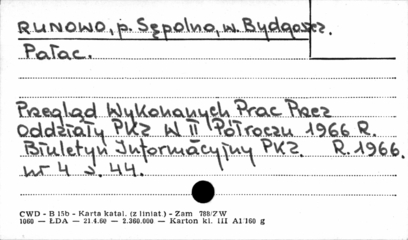 RUNOWO, p. Sępolno, w. Bydgoszcz.
Pałac.
Przegląd Wykonanych Prac Przez
Oddziały PKZ W II Półroczu 1966 R.
Biuletyn Informacyjny PKZ. R. 1966.
nr 4 s. 44.
CWD - B 15b - Karta katal. (z liniat) - Zam 788/ZW
1060 — ŁDA — 21.4.60 — 2.360.000 — Karton kl. III A1 160 g